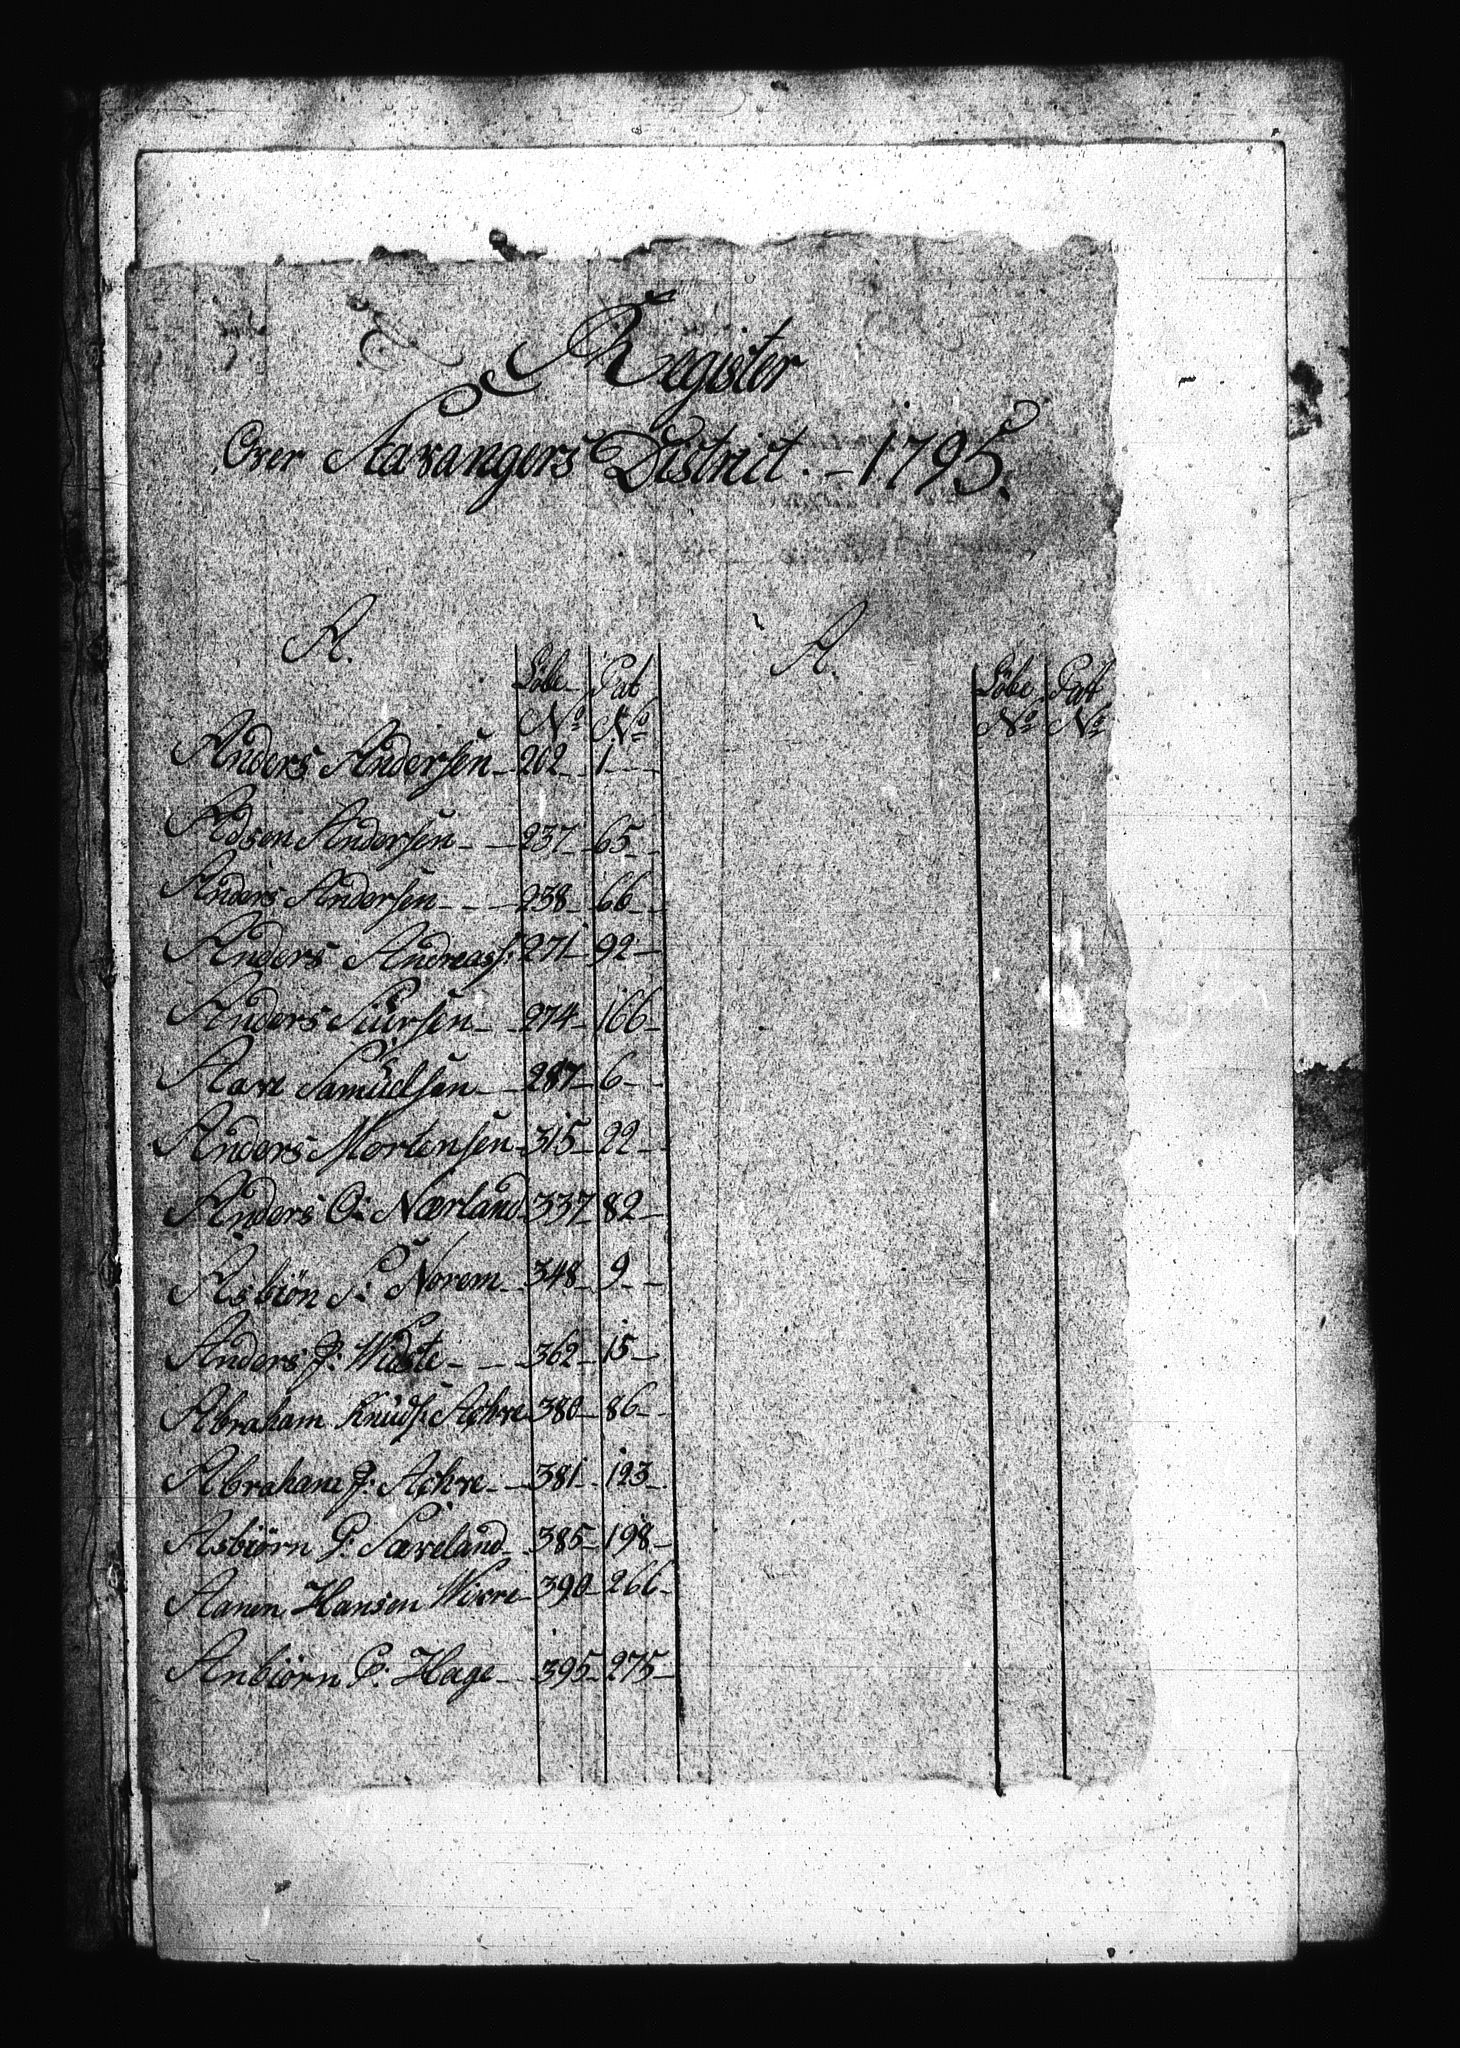 Register
Over Stavangers District. - 1795.
A.
A.
Løbe Pat
No No
Løbe Pat
No No
Anders Andersen - 202 - 1 -
Adsen Andersen - - 237 - 65 -
Anders Andersen - - - 238 - 66 -
Anders Andreass: 271 - 92 -
Anders Siversen - - 274 - 166 -
Aave Samuelsen - - 287 - 6 -
Anders Mortensen - 315 - 22 -
Anders O: Nærland - 337 - 82 -
Asbiøn S: Norem - 348 - 9 -
Anders J: Widste - - - 362 - 15 -
Abraham Knuds: Achre 380 - 86 -
Abraham J: Achre - - 381 - 123 -
Asbiørn P: Sæveland - 385 - 198 -
Aanen Hansen Wixre - 390 - 266 -
Anbiørn P: Hage - - 395 - 275 -